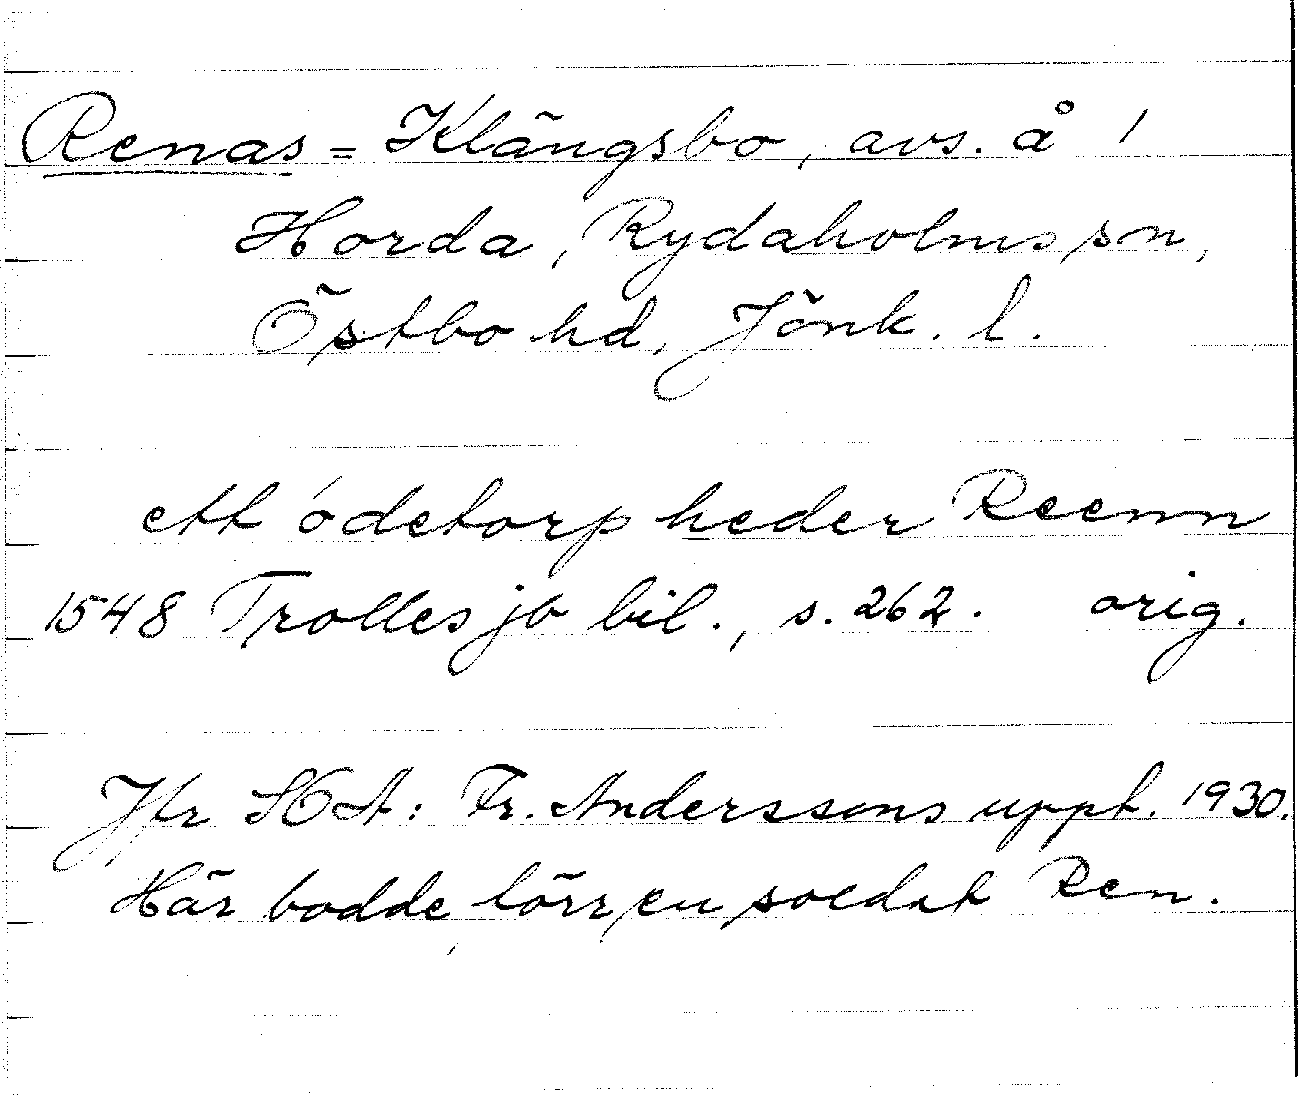 Renas = Klängsbo, avs. å 1
Horda, Rydaholms sn,
Östbo hd, Jönk. l.
ett ödetorp heder Reenn
1548 Trolles jb bil., s. 262. orig.
Jfr SOA: Fr. Anderssons uppt. 1930.
Här bodde förr en soldat Ren.